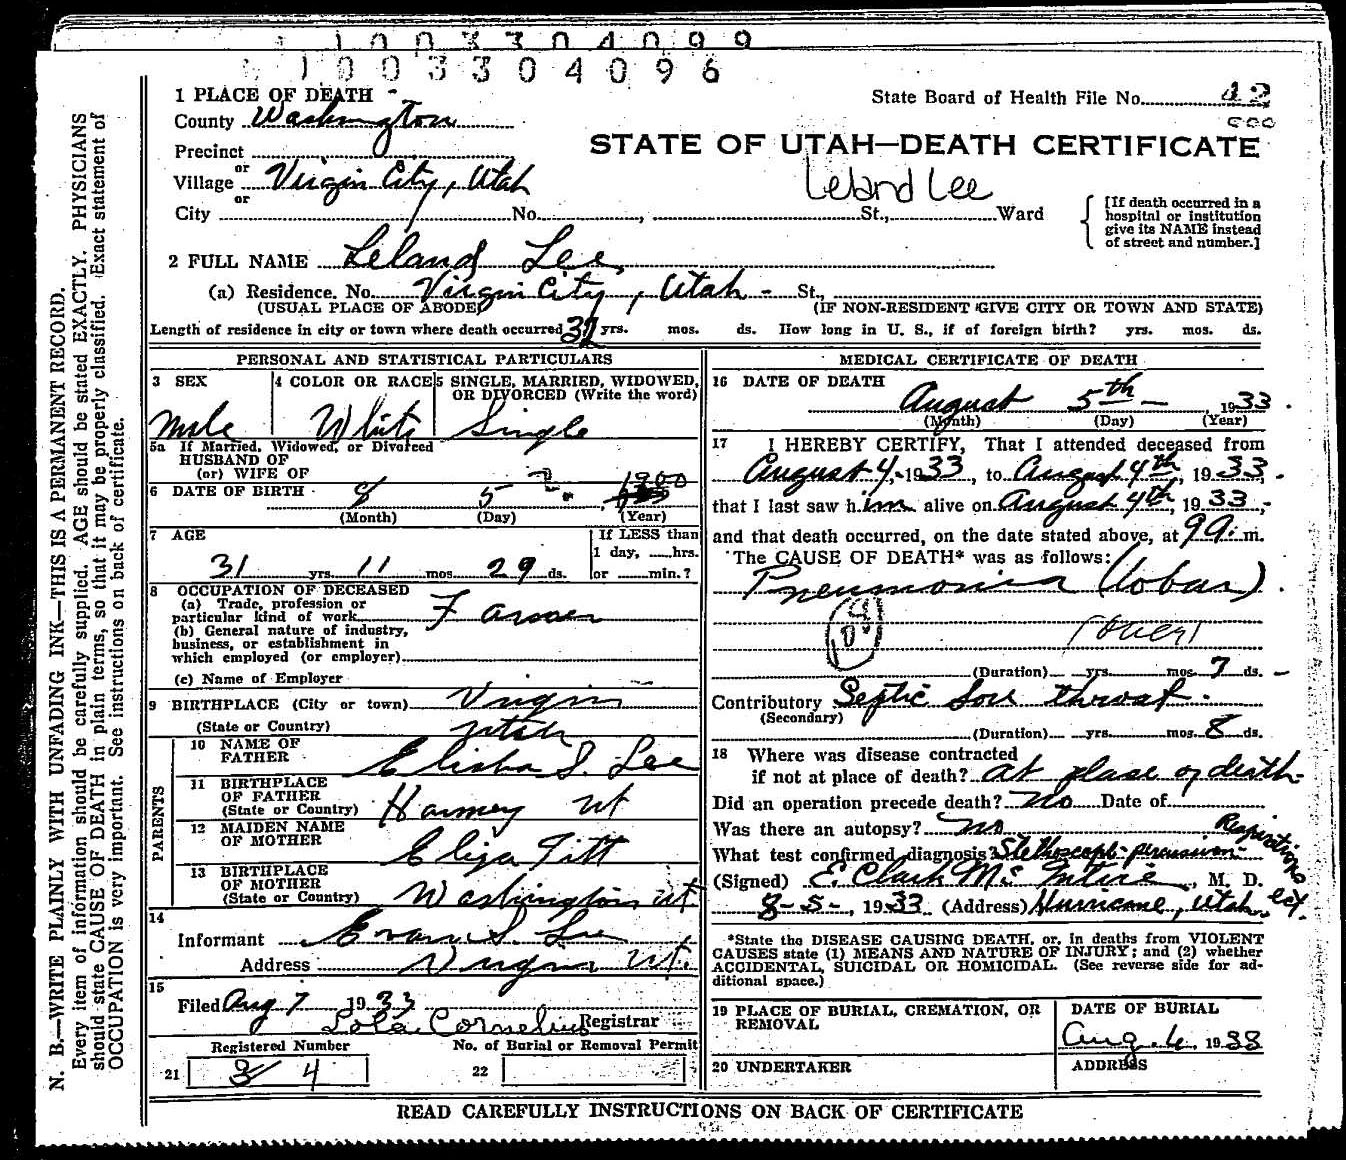 1003304099
1003304096
1 PLACE OF DEATH
State Board of Health File No. 42
County Washington
STATE OF UTAH—DEATH CERTIFICATE
Precinct
or
Leland Lee
Village Virgin City, Utah
or
City No. , St., Ward
[If death occurred in a hospital or institution give its NAME instead of street and number.]
2 FULL NAME Leland Lee
(a) Residence. No. Virgin City, Utah - St.,
(USUAL PLACE OF ABODE) (IF NON-RESIDENT GIVE CITY OR TOWN AND STATE)
Length of residence in city or town where death occurred 32 yrs. mos. ds. How long in U. S., if of foreign birth? yrs. mos. ds.
PERSONAL AND STATISTICAL PARTICULARS
3 SEX 4 COLOR OR RACE 5 SINGLE, MARRIED, WIDOWED, OR DIVORCED (Write the word)
Male White Single
5a If Married, Widowed, or Divorced
HUSBAND OF
(or) WIFE OF
6 DATE OF BIRTH 8 5 1900
(Month) (Day) (Year)
7 AGE
If LESS than
1 day, hrs.
31 yrs. 11 mos. 29 ds. or min.?
8 OCCUPATION OF DECEASED
(a) Trade, profession or
particular kind of work Farmer
(b) General nature of industry,
business, or establishment in
which employed (or employer)
(c) Name of Employer
9 BIRTHPLACE (City or town) Virgin
(State or Country) Utah
PARENTS
10 NAME OF
FATHER Elisha S. Lee
11 BIRTHPLACE
OF FATHER
(State or Country) Harmony Ut
12 MAIDEN NAME
OF MOTHER Eliza Titt
13 BIRTHPLACE
OF MOTHER
(State or Country) Washington Ut
14
Informant Evan S. Lee
Address Virgin Ut.
15
Filed Aug 7 1933
Lola Cornelius Registrar
Registered Number No. of Burial or Removal Permit
21 34 22
MEDICAL CERTIFICATE OF DEATH
16 DATE OF DEATH
August 5th 1933.
(Month) (Day) (Year)
17 I HEREBY CERTIFY, That I attended deceased from
August 4, 1933, to August 4th, 1933,
that I last saw him alive on August 4th, 1933,
and that death occurred, on the date stated above, at 9 a. m.
The CAUSE OF DEATH* was as follows:
Pneumonia (lobar).
108
(over)
(Duration) yrs. mos. 7 ds.
Contributory Septic Sore throat.
(Secondary)
(Duration) yrs. mos. 8 ds.
18 Where was disease contracted
if not at place of death? At place of death
Did an operation precede death? No Date of
Was there an autopsy? No
What test confirmed diagnosis? Stethoscope - percussion - Respirations ect.
(Signed) E. Clark McIntire, M. D.
8-5-, 1933 (Address) Hurricane, Utah
*State the DISEASE CAUSING DEATH, or, in deaths from VIOLENT
CAUSES state (1) MEANS AND NATURE OF INJURY; and (2) whether
ACCIDENTAL, SUICIDAL OR HOMICIDAL. (See reverse side for ad-
ditional space.)
19 PLACE OF BURIAL, CREMATION, OR
REMOVAL
DATE OF BURIAL
Aug. 6, 1933
20 UNDERTAKER ADDRESS
READ CAREFULLY INSTRUCTIONS ON BACK OF CERTIFICATE
N. B.—WRITE PLAINLY WITH UNFADING INK—THIS IS A PERMANENT RECORD.
Every item of information should be carefully supplied. AGE should be stated EXACTLY. PHYSICIANS
should state CAUSE OF DEATH in plain terms, so that it may be properly classified. Exact statement of
OCCUPATION is very important. See instructions on back of certificate.